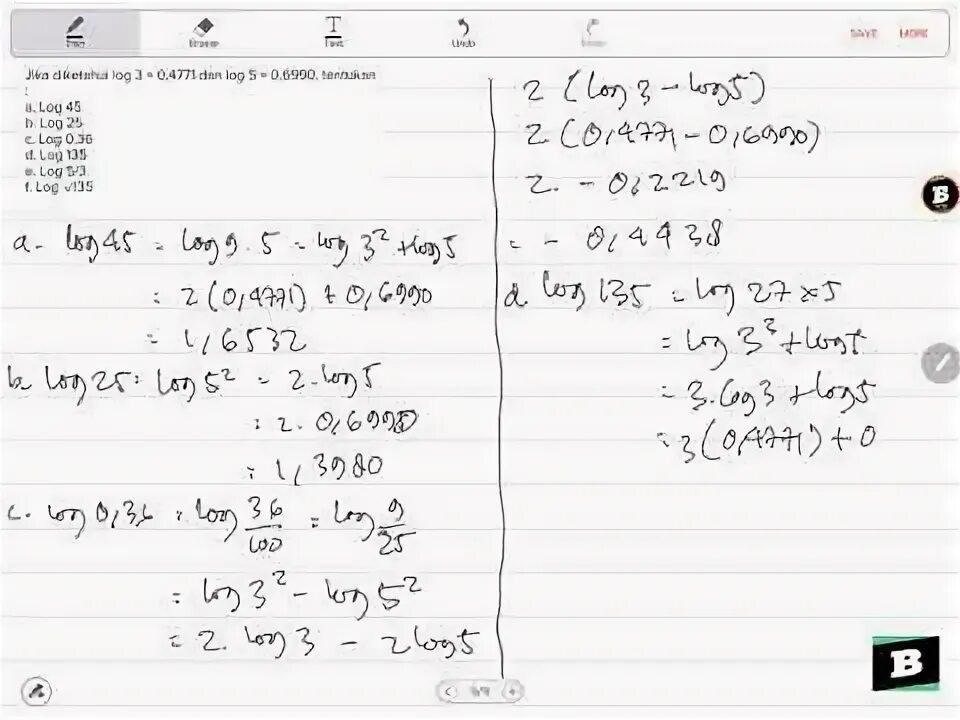 Text
SAVE MORE
Jika diketahui log 3 = 0,4771 dan log 5 = 0,6990, tentukan
:
a. Log 45
b. Log 25
c. Log 0,36
d. Log 135
e. Log 5/3
f. Log √135
a. log 45 = log 9 . 5 = log 3² + log 5
= 2 (0,4771) + 0,6990
= 1,6532
b. log 25 = log 5² = 2 . log 5
= 2 . 0,6990
= 1,3980
c. log 0,36 = log 36/100 = log 9/25
= log 3² - log 5²
= 2 . log 3 - 2 log 5
2 (log 3 - log 5)
2 (0,4771 - 0,6990)
2 . - 0,2219
= - 0,4438
d. log 135 = log 27 x 5
= log 3³ + log 5
= 3 . log 3 + log 5
= 3 (0,4771) + 0
B
B